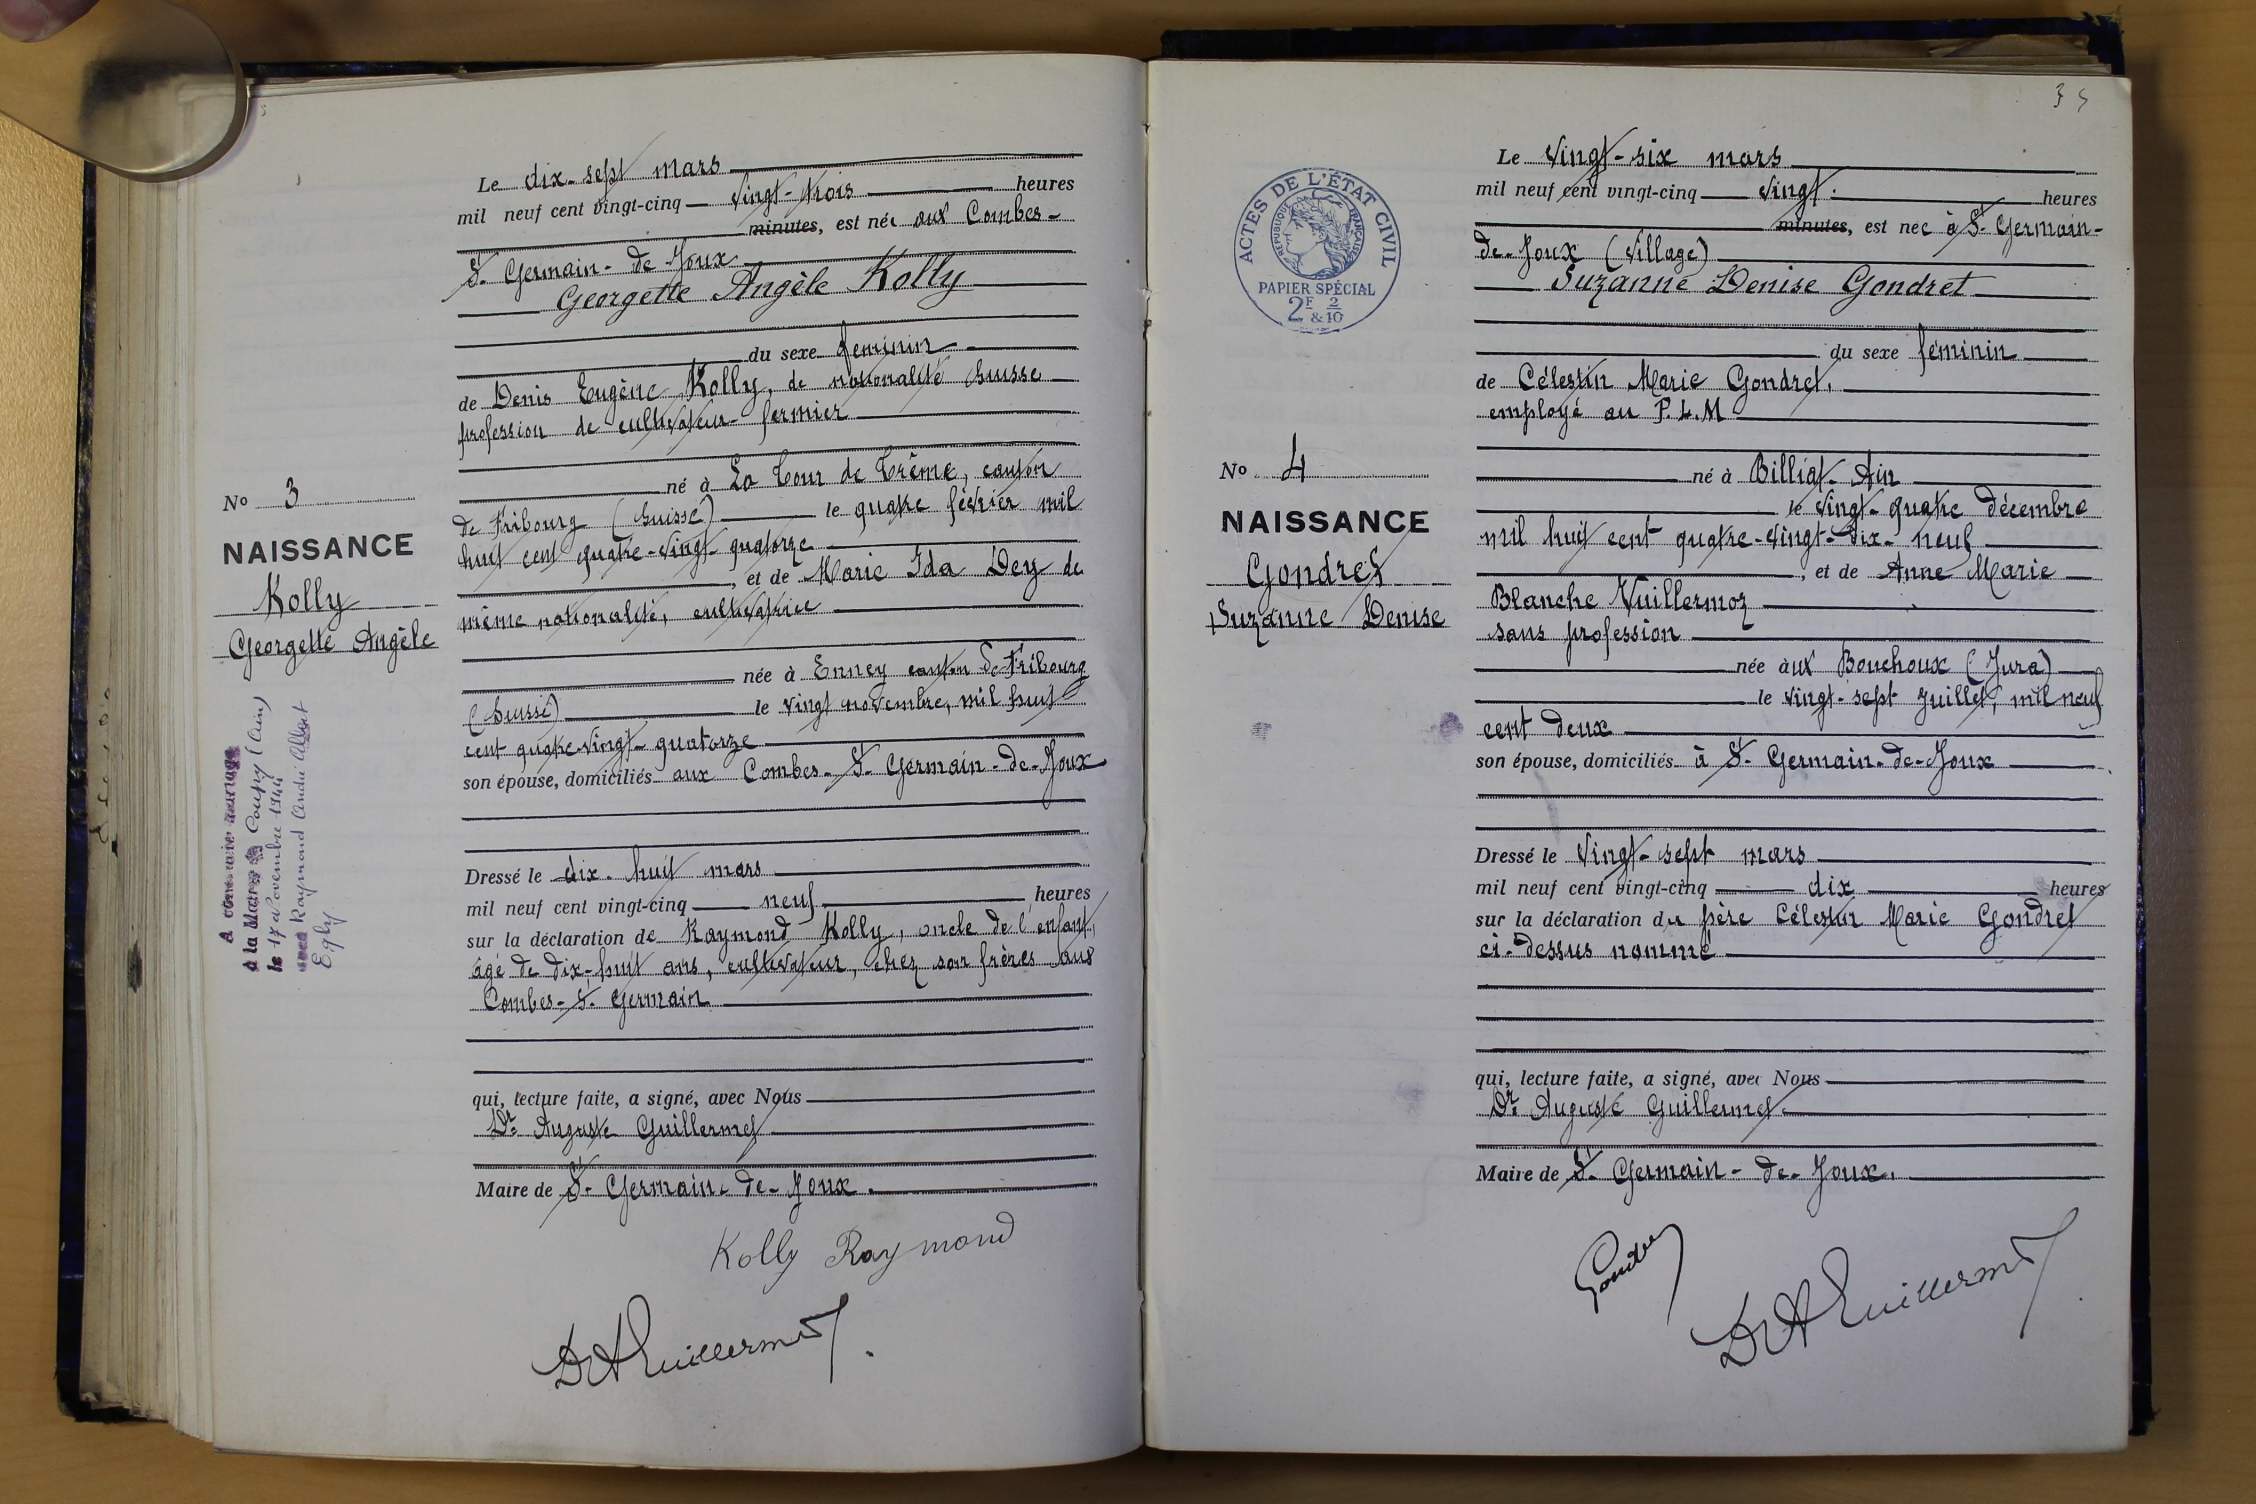 Le dix-sept mars
mil neuf cent vingt-cinq vingt-trois heures
minutes, est née aux Combes-
St Germain-de-Joux
Georgette Angèle Kolly
du sexe féminin
de Denis Eugène Kolly, de nationalité Suisse
profession de cultivateur-fermier
né à La Tour de Trême, canton
de Fribourg (Suisse) le quatre février mil
huit cent quatre-vingt-quatorze
, et de Marie Ida Dey de
même nationalité, cultivatrice
née à Enney canton de Fribourg
(Suisse) le vingt novembre, mil huit
cent quatre-vingt-quatorze
son épouse, domiciliés aux Combes-St Germain-de-Joux
Dressé le dix-huit mars
mil neuf cent vingt-cinq neuf heures
sur la déclaration de Raymond Kolly, oncle de l'enfant,
âgé de dix-huit ans, cultivateur, chez son frères aux
Combes-St Germain
qui, lecture faite, a signé, avec Nous
Dr Auguste Guillermet
Maire de St Germain-de-Joux.
Kolly Raymond
Dr A Guillermet
No 3
NAISSANCE
Kolly
Georgette Angèle
A contracté mariage
à la Mairie de Coupy (Ain)
le 17 Novembre 1944
avec Raymond André Albert
Egly
34
ACTES DE L'ÉTAT CIVIL
RÉPUBLIQUE FRANÇAISE
PAPIER SPÉCIAL
2F & 2/10
No 4
NAISSANCE
Gondret
Suzanne Denise
Le vingt-six mars
mil neuf cent vingt-cinq vingt heures
minutes, est née à St Germain-
de-Joux (village)
Suzanne Denise Gondret
du sexe féminin
de Célestin Marie Gondret,
employé au P.L.M
né à Billiat-Ain
le vingt-quatre décembre
mil huit cent quatre-vingt-dix-neuf
, et de Anne Marie
Blanche Vuillermoz
sans profession
née aux Bouchoux (Jura)
le vingt-sept juillet, mil neuf
cent deux
son épouse, domiciliés à St Germain-de-Joux
Dressé le vingt-sept mars
mil neuf cent vingt-cinq dix heures
sur la déclaration du père Célestin Marie Gondret
ci-dessus nommé
qui, lecture faite, a signé, avec Nous
Dr Auguste Guillermet
Maire de St Germain-de-Joux.
Gondret
Dr A Guillermet